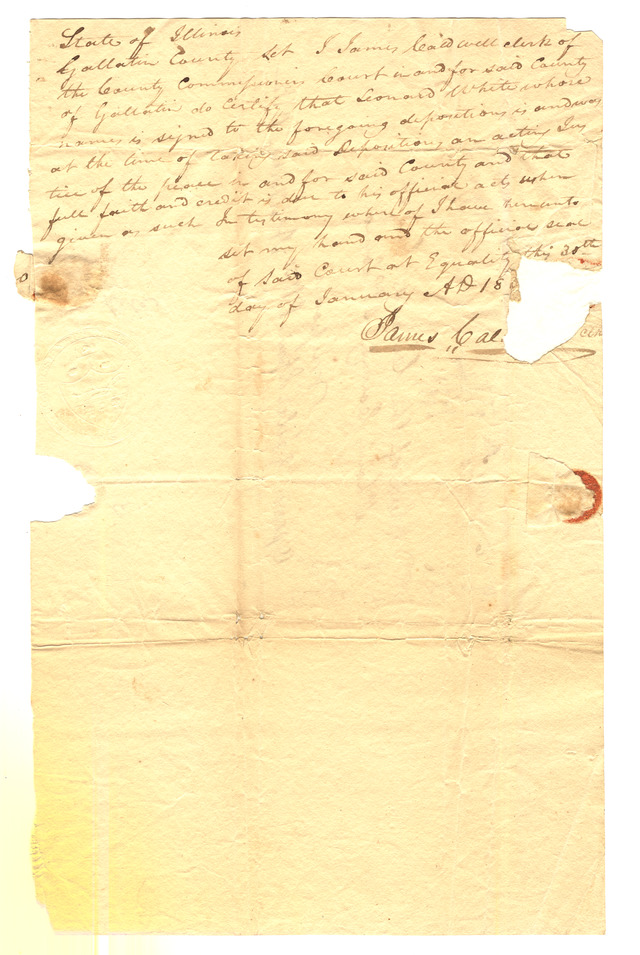 State of Illinois
Gallatin County Sct I James Caldwell clerk of
the County Commissioners Court in and for said County
of Gallatin do Certify that Leonard White whose
names is signed to the foregoing depositions is and was
at the time of taking said Depositions an acting Jus
tice of the peace in and for said County and that
full faith and credit is due to his official acts when
given as such In testimony where of I have hereunto
set my hand and the official seal
of said Court at Equality this 30th
day of January AD 18
James Cal